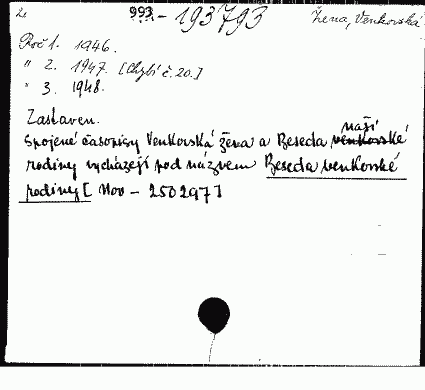 2. 993.-193793 Žena, Venkovská
Roč 1. 1946.
" 2. 1947. [Chybí č. 20.]
" 3. 1948.
Zastaven.
Spojené časopisy Venkovská žena a Beseda venkovské naší
rodiny vycházejí pod názvem Beseda venkovské
rodiny [Nov - 250297]